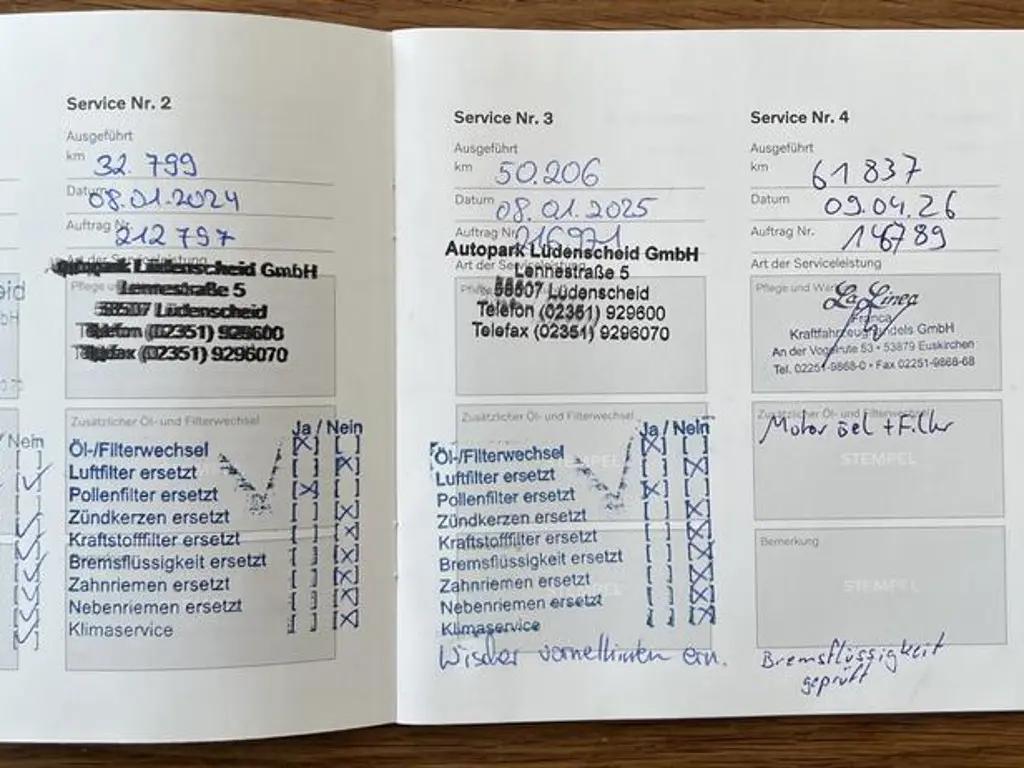 Service Nr. 2
Ausgeführt
km 32.799
Datum 08.01.2024
Auftrag Nr. 212 797
Autopark Lüdenscheid GmbH
Lennestraße 5
58507 Lüdenscheid
Telefon (02351) 929600
Telefax (02351) 9296070
Zusätzlicher Öl- und Filterwechsel
Ja / Nein
Öl-/Filterwechsel [X] [ ]
Luftfilter ersetzt
Pollenfilter ersetzt
Zündkerzen ersetzt
Kraftstofffilter ersetzt
Bremsflüssigkeit ersetzt
Zahnriemen ersetzt
Nebenriemen ersetzt
Klimaservice
Service Nr. 3
Ausgeführt
km 50.206
Datum 08.01.2025
Auftrag Nr. 216971
Autopark Lüdenscheid GmbH
Art der Serviceleistung
Lennestraße 5
58507 Lüdenscheid
Telefon (02351) 929600
Telefax (02351) 9296070
Zusätzlicher Öl- und Filterwechsel
Ja / Nein
Öl-/Filterwechsel
Luftfilter ersetzt
Pollenfilter ersetzt
Zündkerzen ersetzt
Kraftstofffilter ersetzt
Bremsflüssigkeit ersetzt
Zahnriemen ersetzt
Nebenriemen ersetzt
Klimaservice
Wischer vorne/hinten ern.
Service Nr. 4
Ausgeführt
km 61 837
Datum 09.04.26
Auftrag Nr.
Art der Serviceleistung
Pflege und
La Linea
Franca
Kraftfahrzeughandels GmbH
An der Vogelrute 53 • 53879 Euskirchen
Tel. 02251-9868-0 • Fax 02251-9868-68
Zusätzlicher Öl- und Filterwechsel
Motoröel + Filter
STEMPEL
Bemerkung
STEMPEL
Bremsflüssigkeit
geprüft